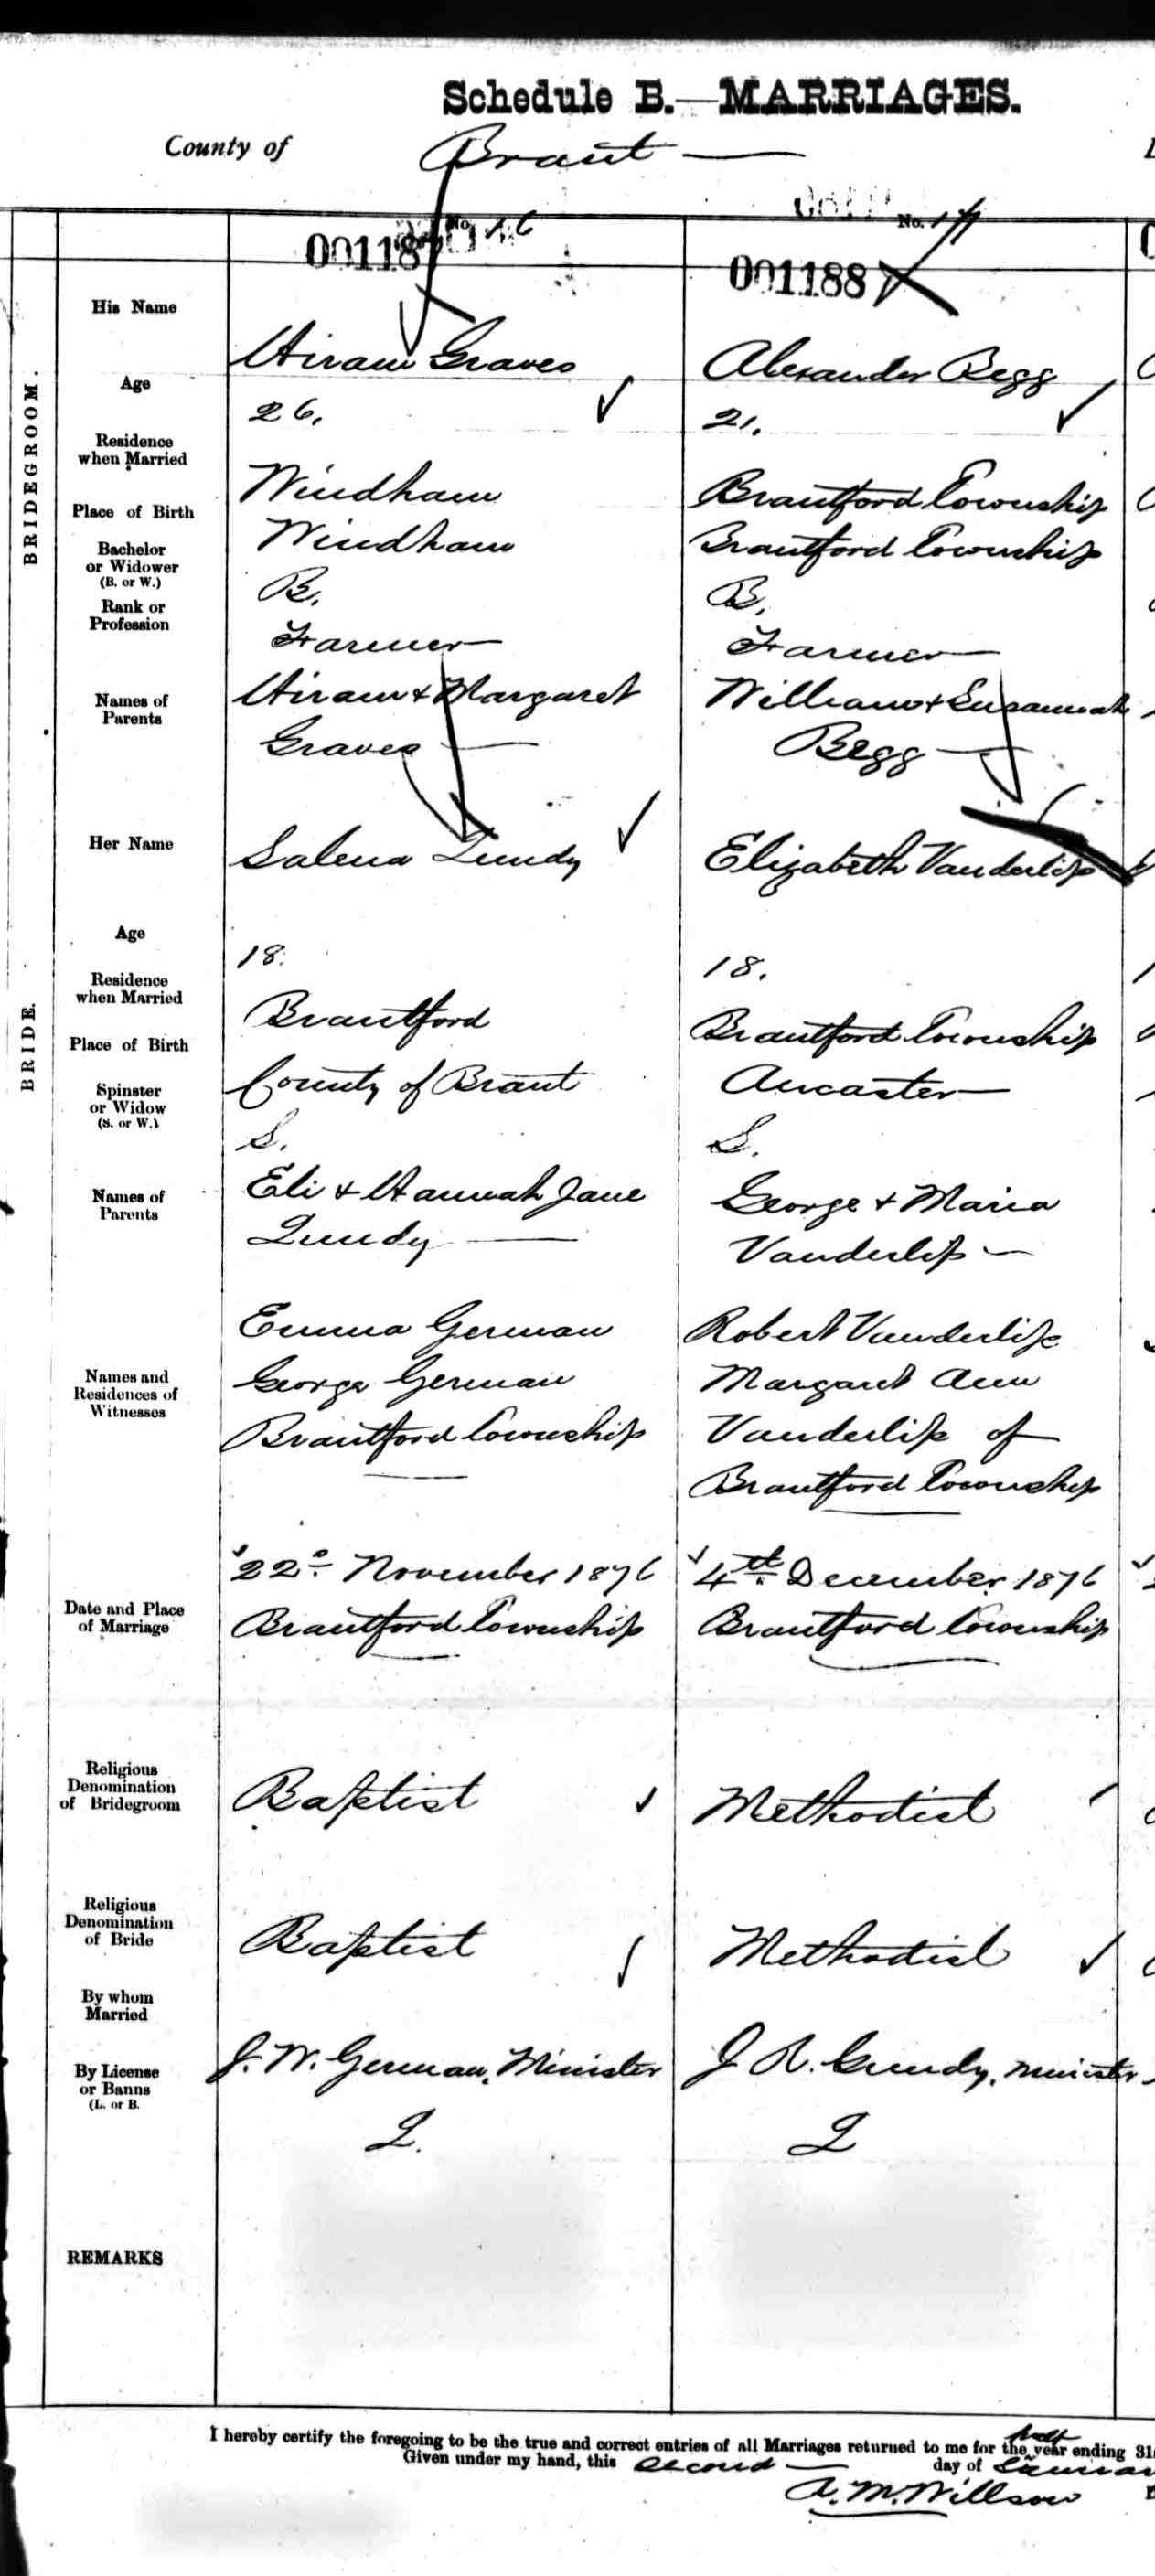 Schedule B.—MARRIAGES.
County of Brant —
No. 16
No. 17
001187
001188
BRIDEGROOM.
His Name
Hiram Graves
Alexander Begg
Age
26.
21.
Residence
when Married
Windham
Brantford Township
Place of Birth
Windham
Brantford Township
Bachelor
or Widower
(B. or W.)
B.
B.
Rank or
Profession
Farmer
Farmer
Names of
Parents
Hiram & Margaret
Graves —
William & Susannah
Begg —
BRIDE.
Her Name
Salena Lundy
Elizabeth Vanderlip
Age
18.
18.
Residence
when Married
Brantford
Brantford Township
Place of Birth
County of Brant
Ancaster
Spinster
or Widow
(S. or W.)
S.
S.
Names of
Parents
Eli & Hannah Jane
Lundy —
George & Maria
Vanderlip —
Names and
Residences of
Witnesses
Emma German
George German
Brantford Township
Robert Vanderlip
Margaret Ann
Vanderlip of
Brantford Township
Date and Place
of Marriage
22nd November 1876
Brantford Township
4th December 1876
Brantford Township
Religious
Denomination
of Bridegroom
Baptist
Methodist
Religious
Denomination
of Bride
Baptist
Methodist
By whom
Married
J. W. German, Minister
J R. Gundy, Minister
By License
or Banns
(L. or B.
L.
L
REMARKS
I hereby certify the foregoing to be the true and correct entries of all Marriages returned to me for the half year ending 31
Given under my hand, this second — day of
A. M. Willson